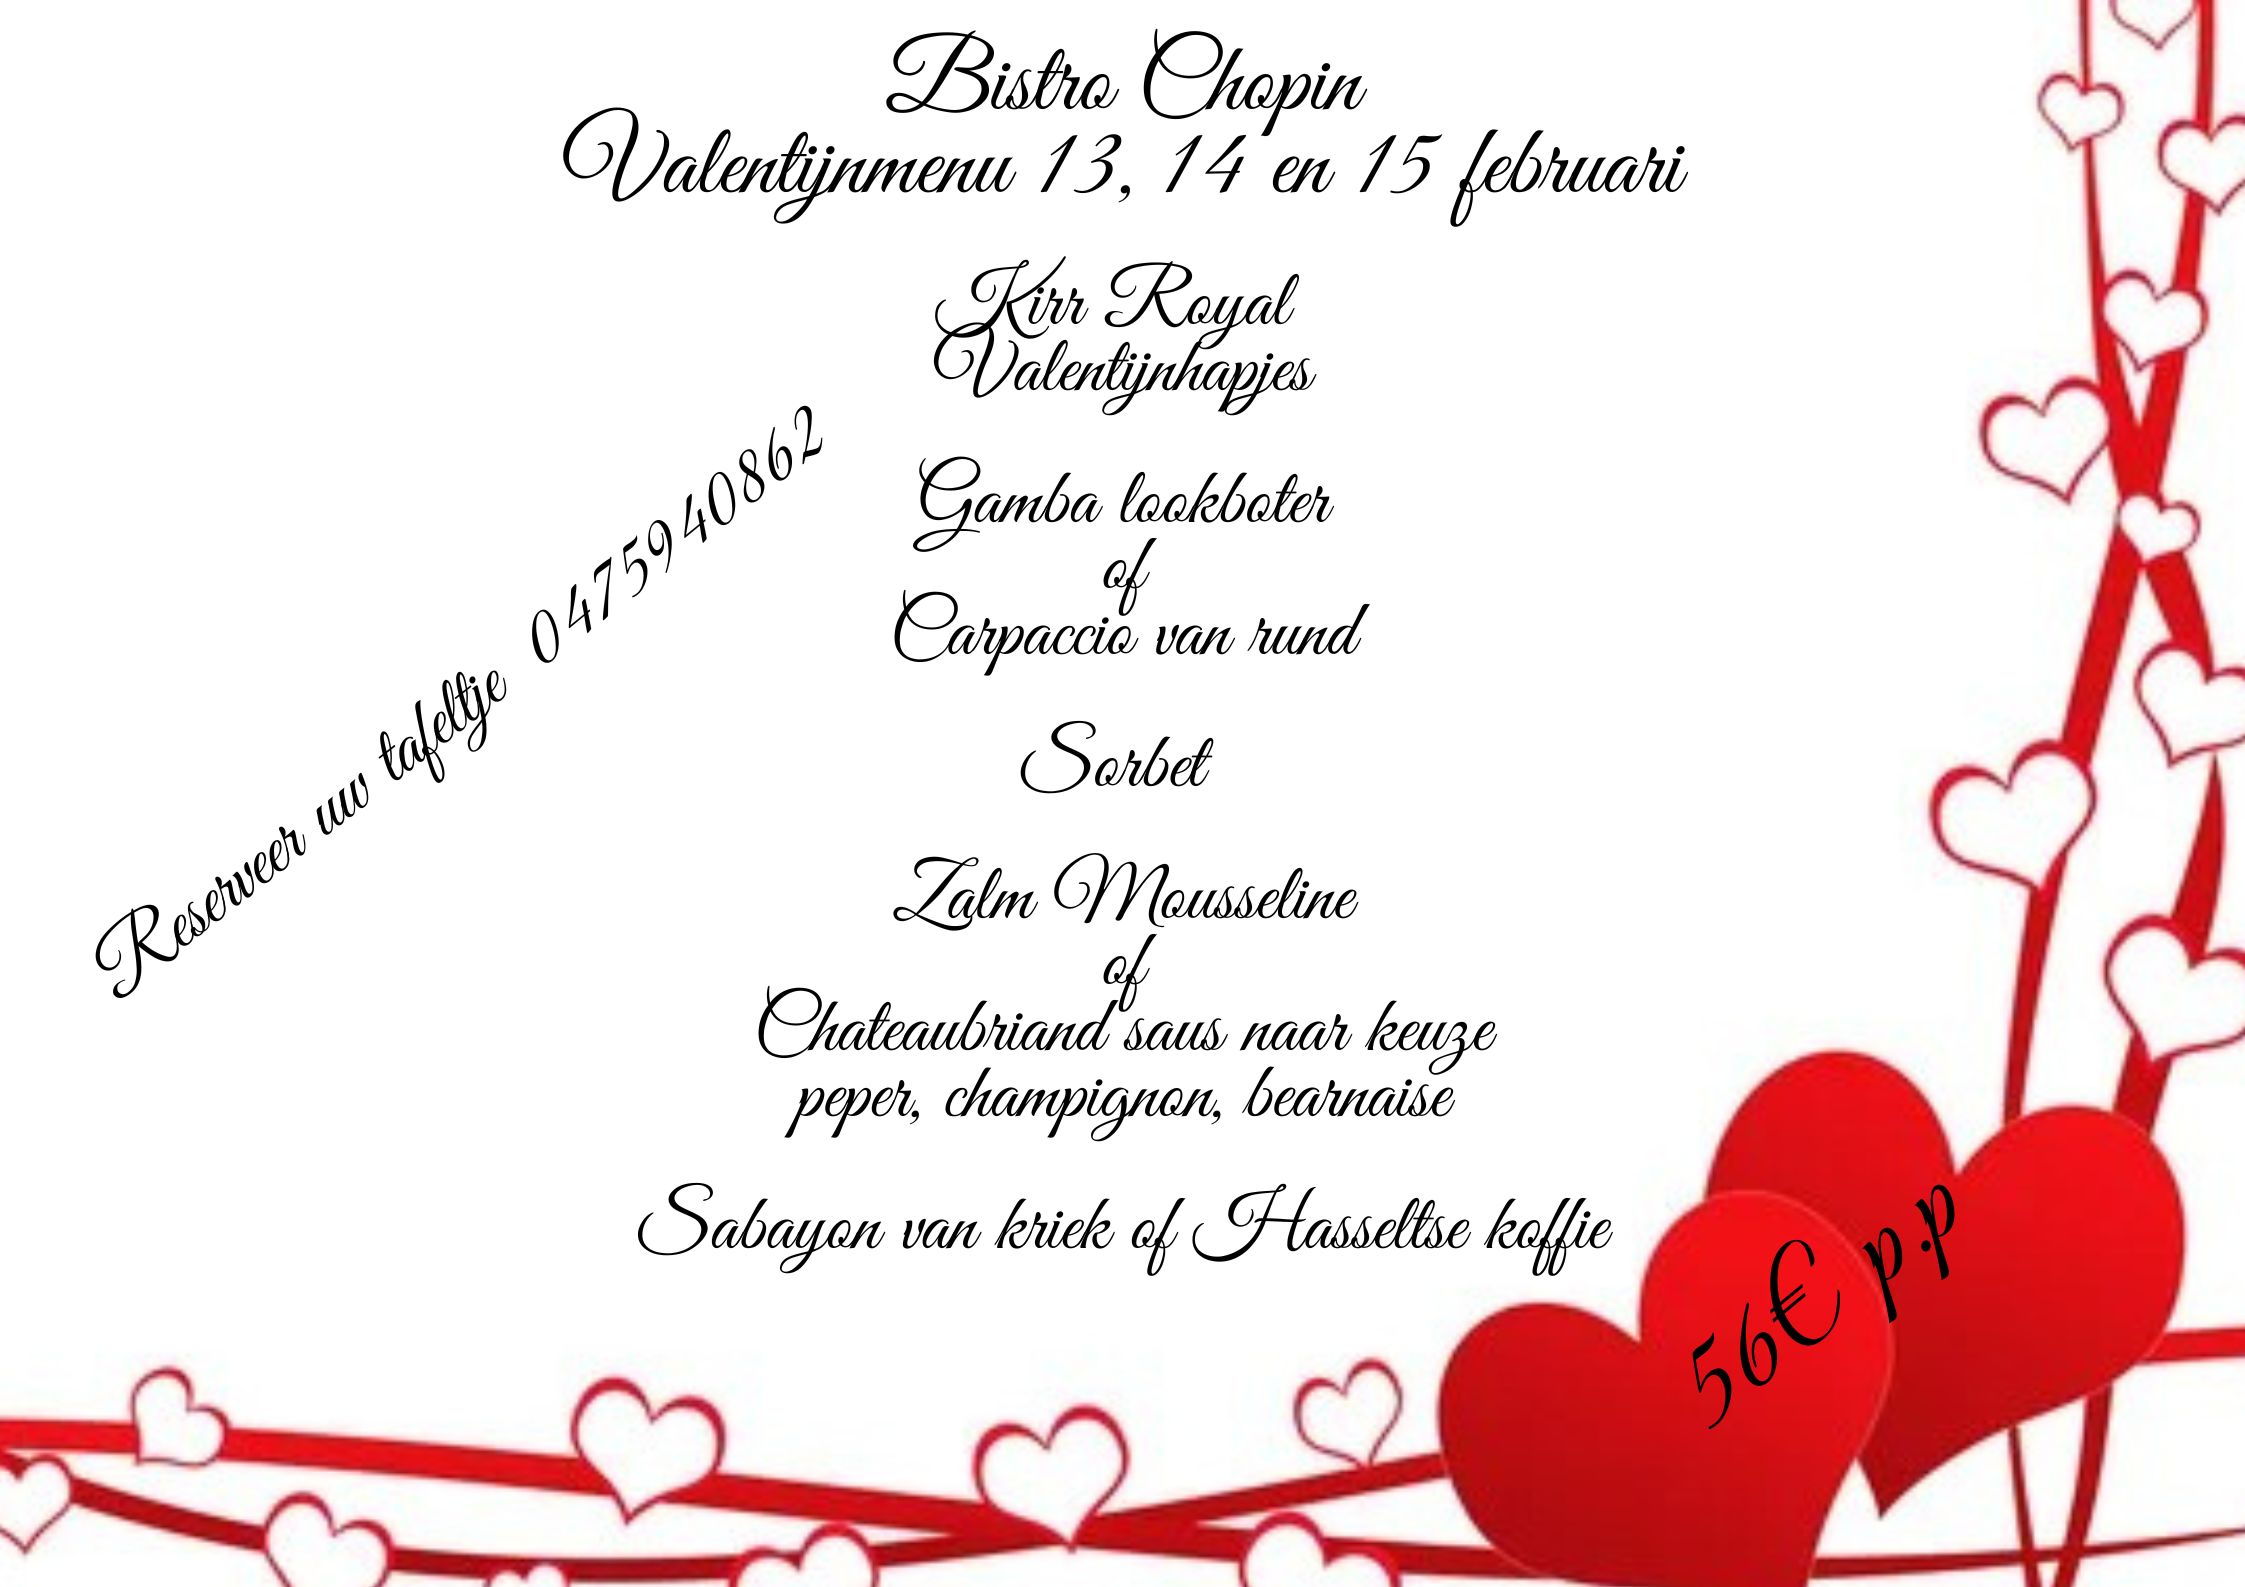 Bistro Chopin
Valentijnmenu 13, 14 en 15 februari
Kirr Royal
Valentijnhapjes
Gamba lookboter
of
Carpaccio van rund
Sorbet
Zalm Mousseline
of
Chateaubriand saus naar keuze
peper, champignon, bearnaise
Sabayon van kriek of Hasseltse koffie
Reserveer uw tafeltje 0475940862
56€ p.p